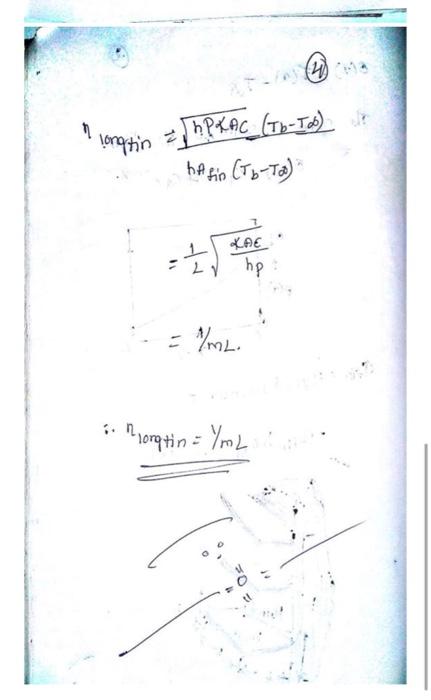 4
η long fin = √hPKAC (Tb-T∞)
hA fin (Tb-T∞)
= 1/L √KAC/hp
= 1/mL.
∴ η long fin = 1/mL